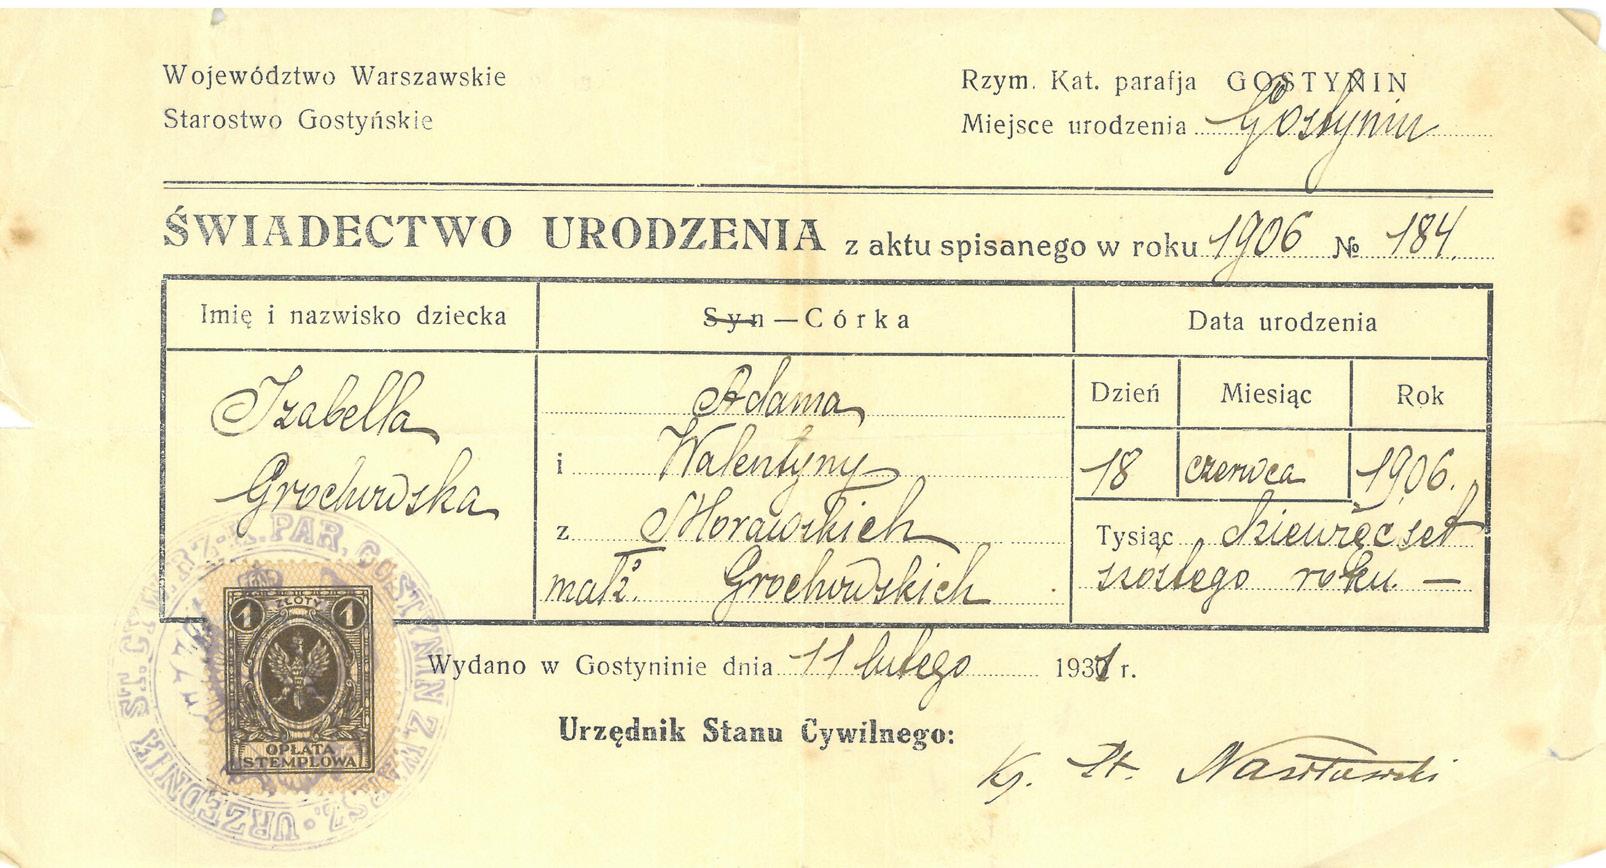 Województwo Warszawskie
Starostwo Gostyńskie
Rzym. Kat. parafja GOSTYNIN
Miejsce urodzenia Gostynin
ŚWIADECTWO URODZENIA z aktu spisanego w roku 1906 № 184.
Imię i nazwisko dziecka
Syn — Córka
Data urodzenia
Dzień Miesiąc Rok
Izabella
Grochowska
Adama
i Walentyny
z Morawskich
małż. Grochowskich
18 czerwca 1906.
Tysiąc dziewięćset
szóstego roku. —
Wydano w Gostyninie dnia 11 lutego 1931 r.
Urzędnik Stanu Cywilnego:
Ks. St.
1 ZŁOTY 1
OPŁATA
STEMPLOWA
URZĘDNIK ST. CYW. RZ.-K. PAR. GOSTYNIN Z. WARSZ.